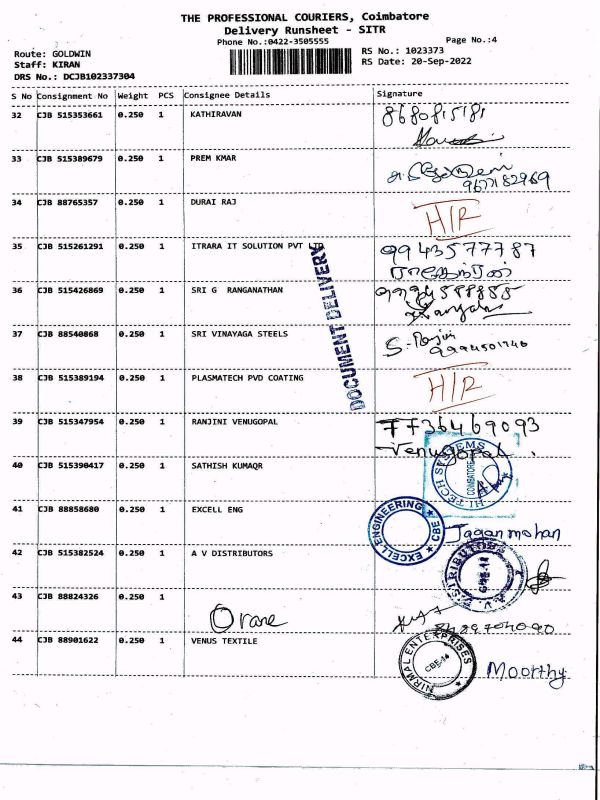 THE PROFESSIONAL COURIERS, Coimbatore
Delivery Runsheet - SITR
Phone No.:0422-3505555
Page No.:4
Route: GOLDWIN
RS No.: 1023373
Staff: KIRAN
RS Date: 20-Sep-2022
DRS No.: DCJB102337304
S No Consignment No Weight PCS Consignee Details Signature
32 CJB 515353661 0.250 1 KATHIRAVAN 8680815181
33 CJB 515389679 0.250 1 PREM KMAR
9677182969
34 CJB 88765357 0.250 1 DURAI RAJ H/R
35 CJB 515261291 0.250 1 ITRARA IT SOLUTION PVT LTD 9943577787
DOCUMENT DELIVERY
36 CJB 515426869 0.250 1 SRI G RANGANATHAN
37 CJB 88540868 0.250 1 SRI VINAYAGA STEELS
9994501746
38 CJB 515389194 0.250 1 PLASMATECH PVD COATING H/R
39 CJB 515347954 0.250 1 RANJINI VENUGOPAL 7736469093
Venugopal.
40 CJB 515390417 0.250 1 SATHISH KUMAQR
HI-TECH SYSTEMS
COIMBATORE
41 CJB 88858680 0.250 1 EXCELL ENG
EXCELL ENGINEERING CBE
Jagan mohan
42 CJB 515382524 0.250 1 A V DISTRIBUTORS
A.V. DISTRIBUTORS
43 CJB 88824326 0.250 1
Orane
44 CJB 88901622 0.250 1 VENUS TEXTILE
NIRMAL ENTERPRISES
CBE-14
Moorthy